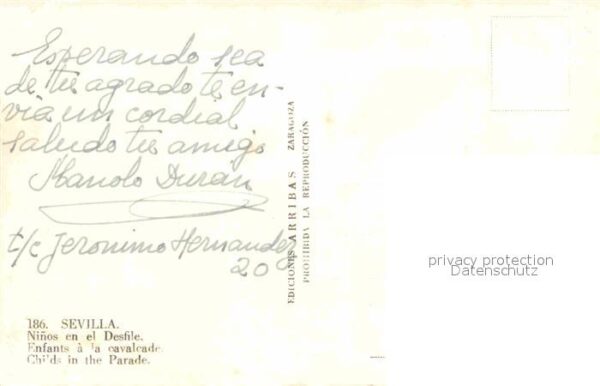 Esperando sea
de tu agrado te en-
via un cordial
saludo tu amigo
Manolo Duran
t/c Jeronimo Hernandez
20
186. SEVILLA.
Niños en el Desfile.
Enfants à la cavalcade.
Chi'ds in the Parade.
EDICIONES ARRIBAS ZARAGOZA
PROHIBIDA LA REPRODUCCIÓN
privacy protection
Datenschutz